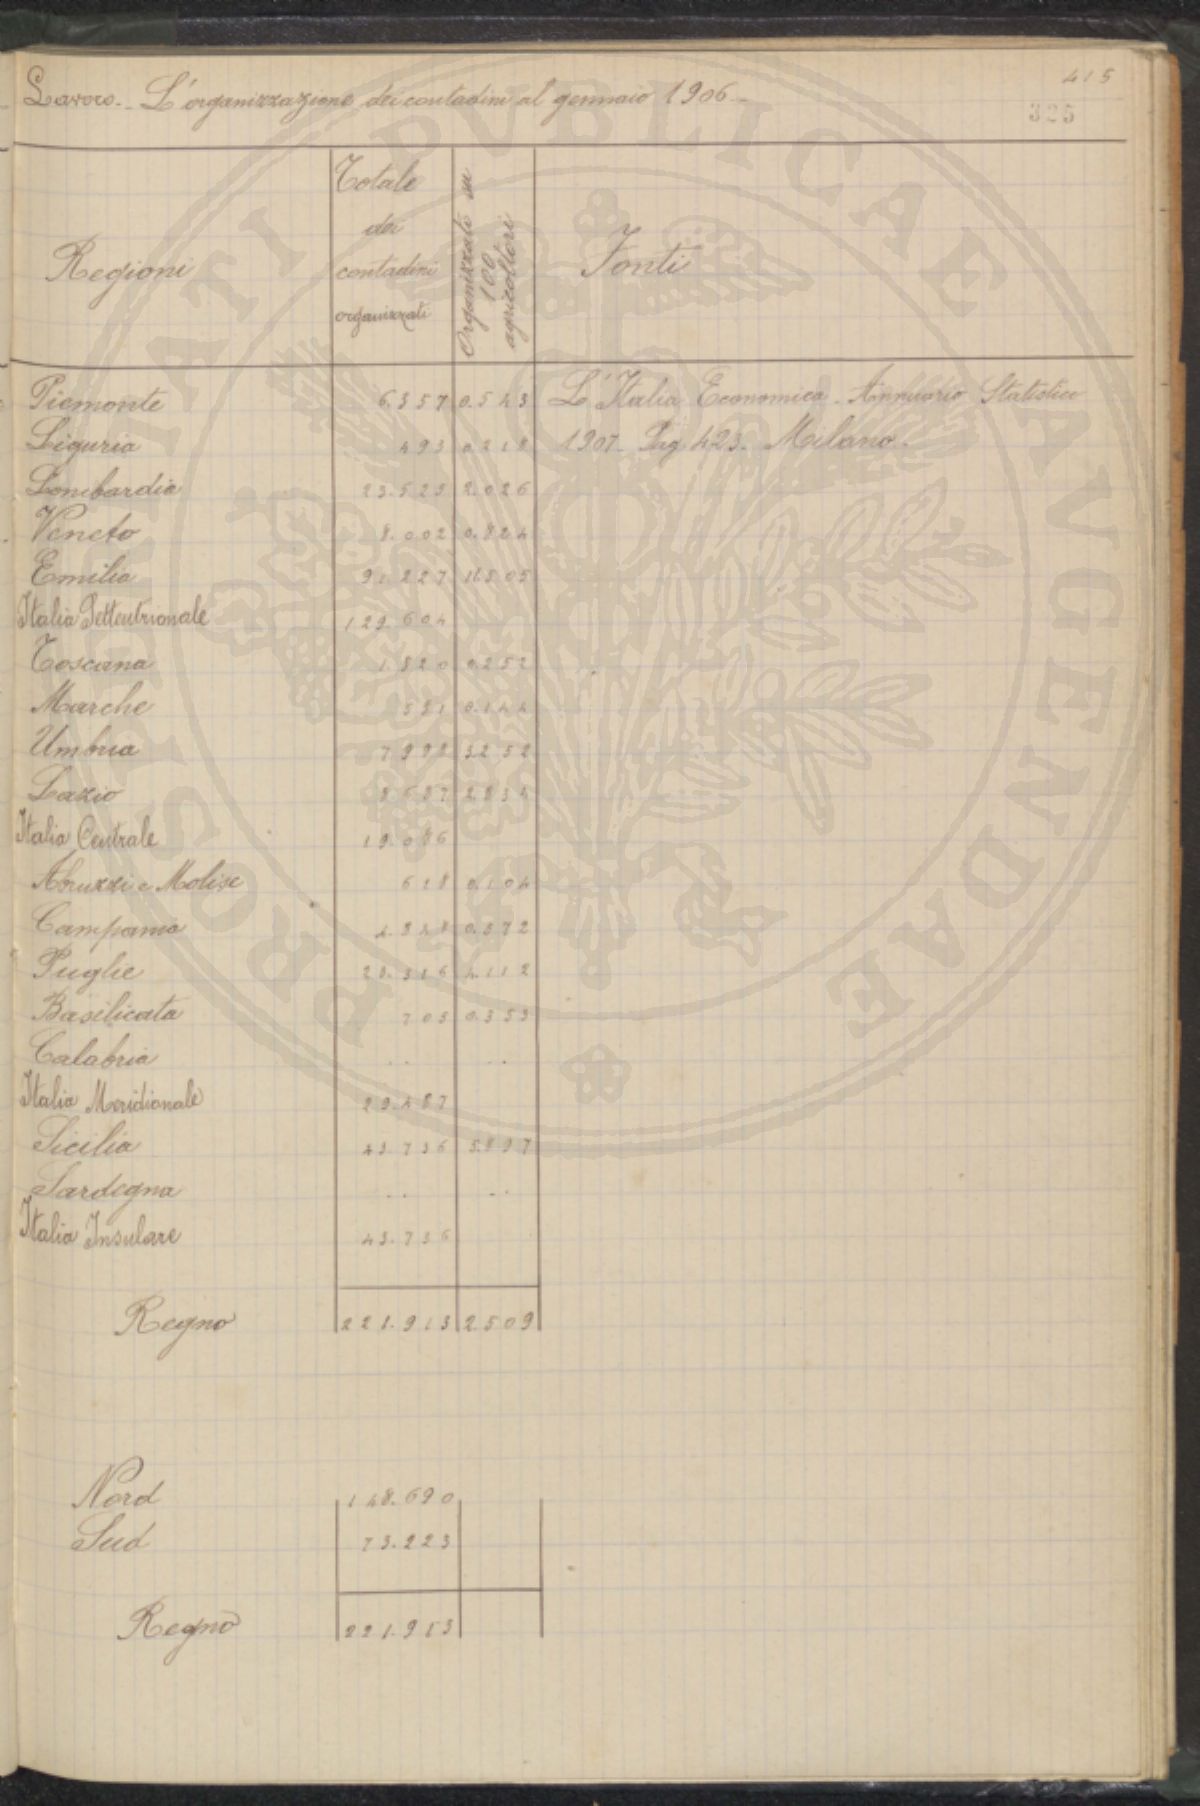 Lavoro.- L'organizzazione dei contadini al gennaio 1906 -
415
325
Regioni
Totale
dei
contadini
organizzati
Organizzati su
100
agricoltori
Fonti
Piemonte 6.357 0.543 L'Italia Economica. Annuario Statistico
Liguria 493 0.218 1907. Pag 423. Milano.
Lombardia 23.525 2.026
Veneto 8.002 0.824
Emilia 91.227 11.505
Italia Settentrionale 129.604
Toscana 1.820 0.252
Marche 581 0.144
Umbria 7.998 3.252
Lazio 8.687 2.834
Italia Centrale 19.086
Abruzzi e Molise 618 0.104
Campania 4.848 0.572
Puglie 23.316 4.112
Basilicata 705 0.353
Calabria .. ..
Italia Meridionale 29.487
Sicilia 43.736 5.897
Sardegna .. ..
Italia Insulare 43.736
Regno 221.913 2.509
Nord 148.690
Sud 73.223
Regno 221.913
PROSPERITATI PVBLICAE AVGENDAE